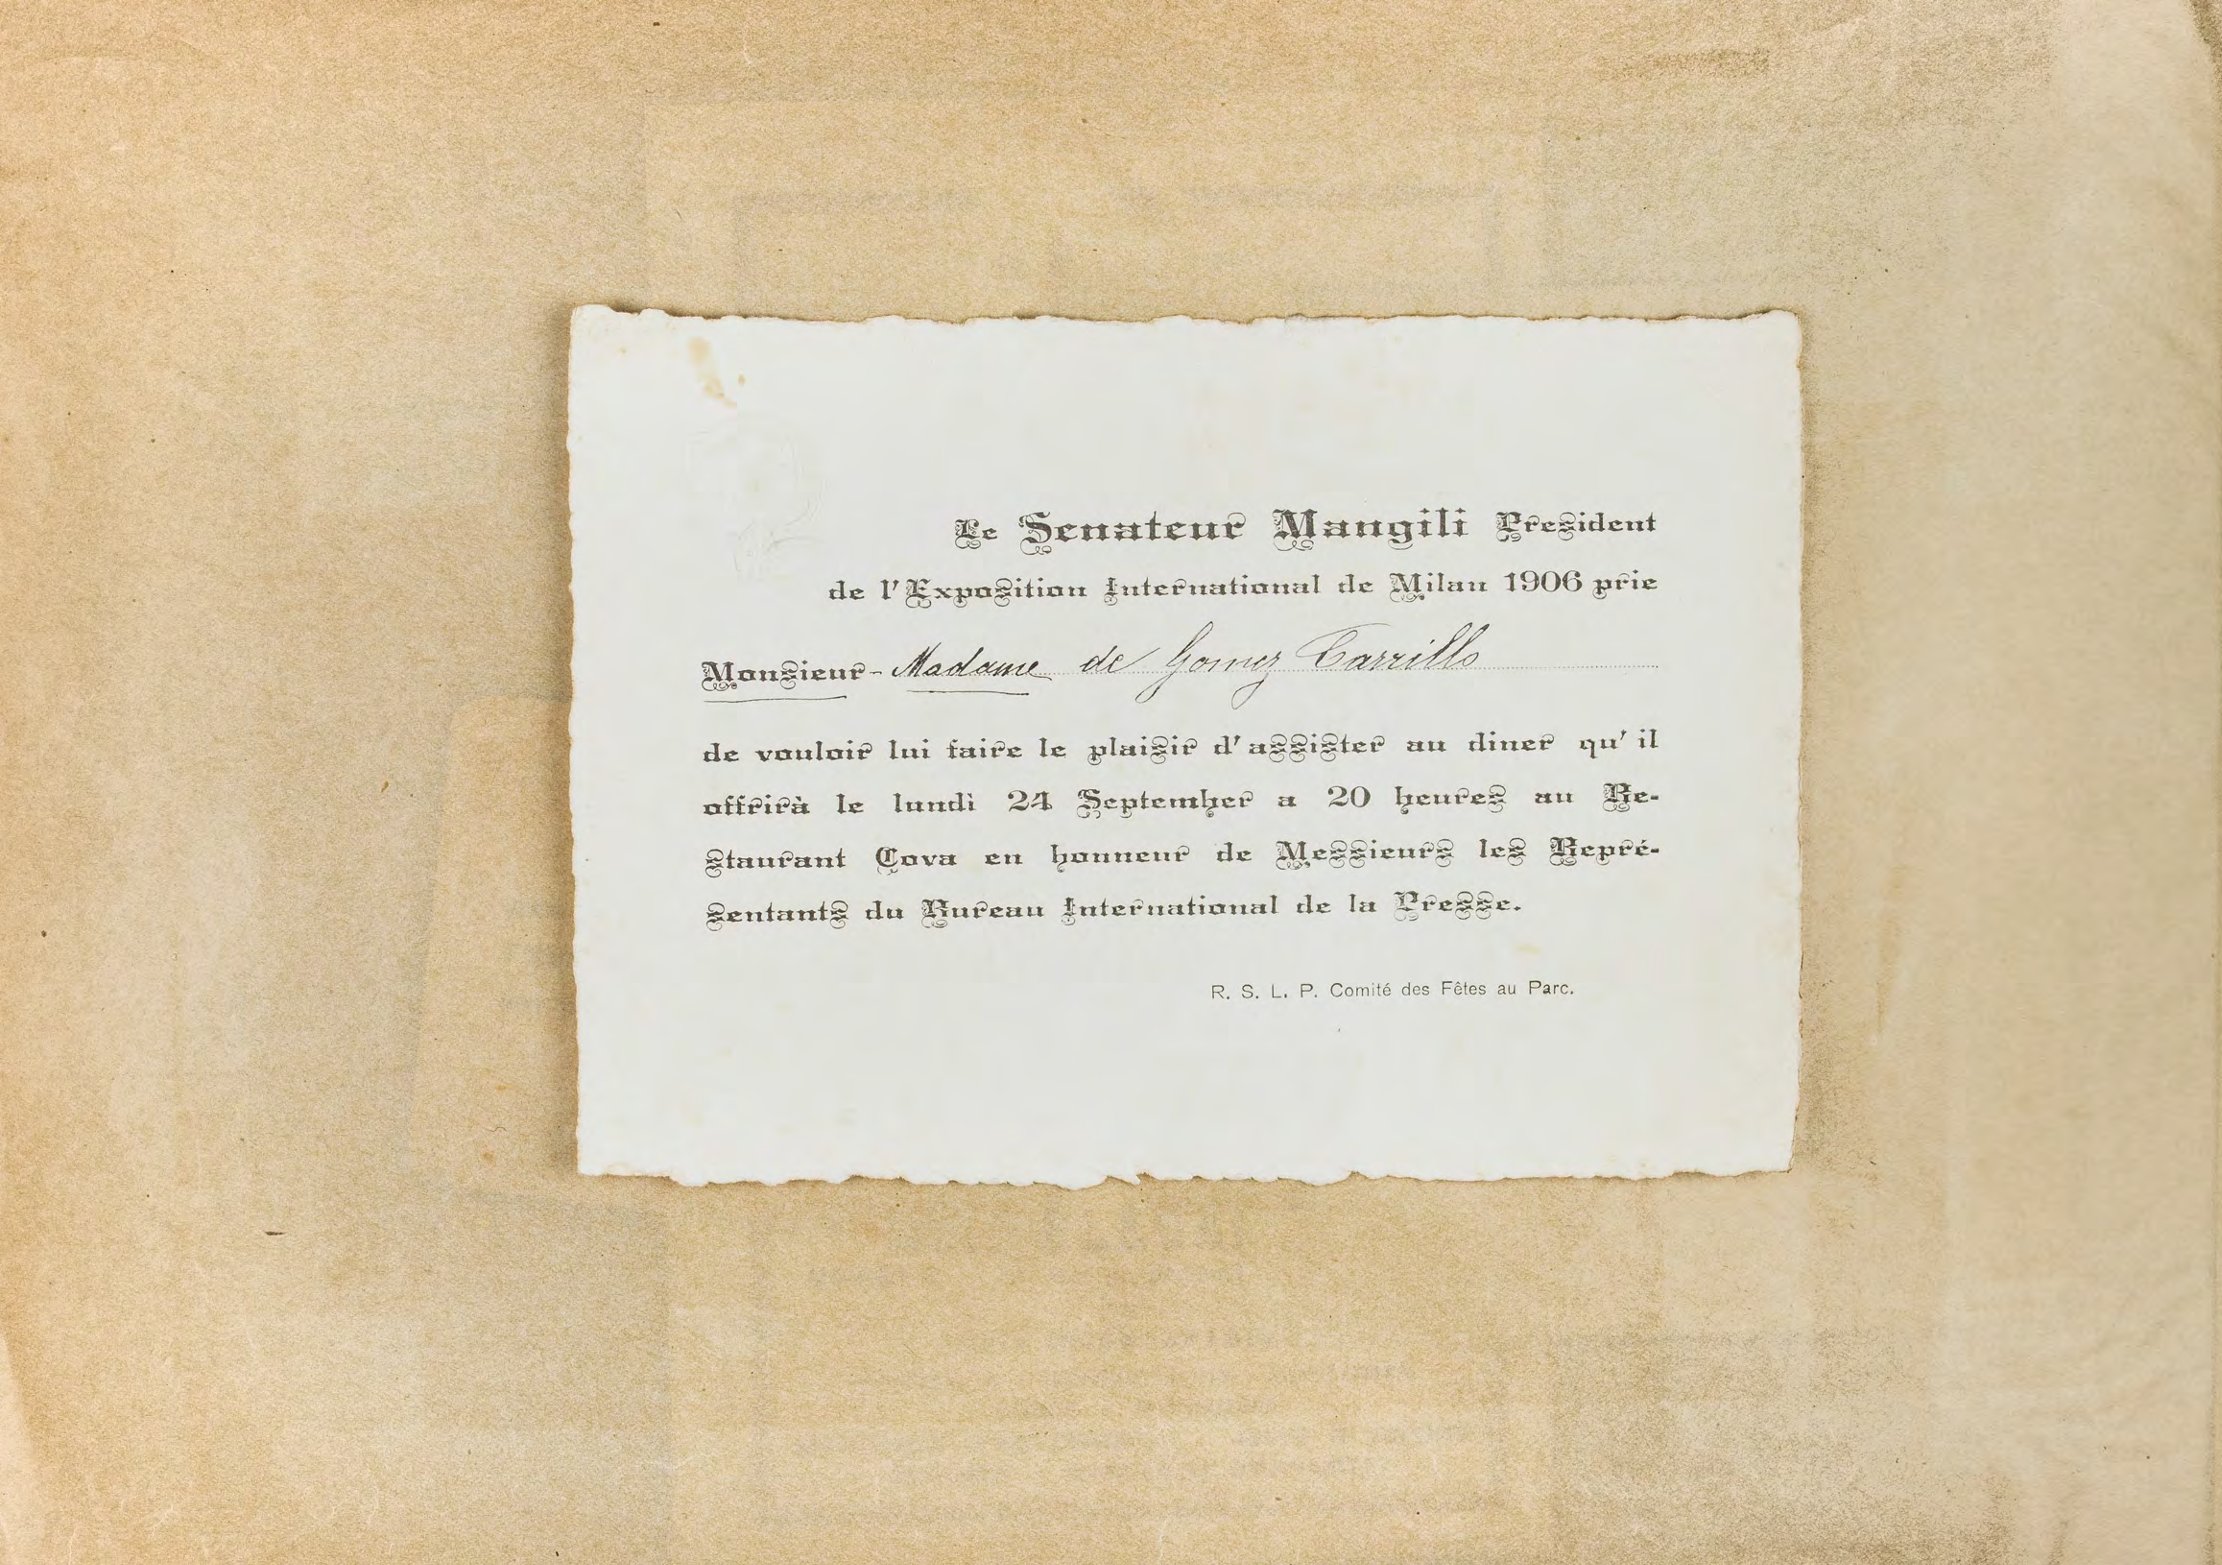 Le Senateur Mangili President
de l'Exposition International de Milan 1906 prie
Monsieur - Madame de Gomez Carrillo
de vouloir lui faire le plaisir d'assister au diner qu'il
offrirà le lundì 24 September a 20 heures au Re-
staurant Cova en honneur de Messieurs les Repré-
sentants du Bureau International de la Presse.
R. S. L. P. Comité des Fêtes au Parc.